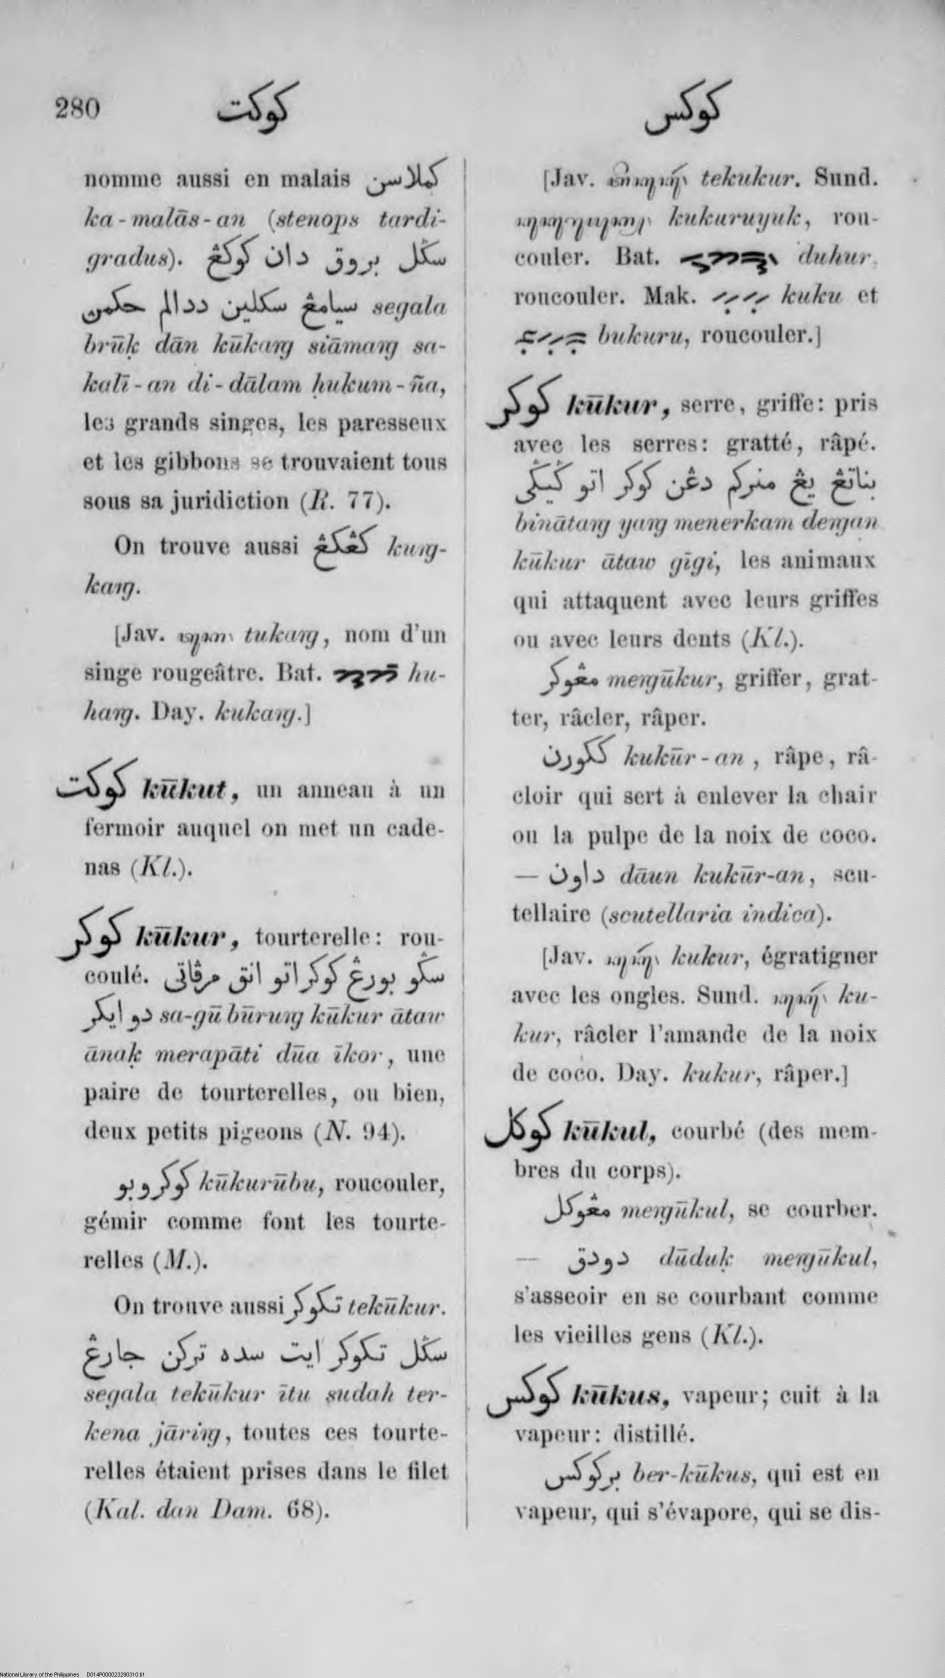 280
كوكت
كوكس
nomme aussi en malais كملاسن
ka-malās-an (stenops tardi-
gradus). سگل بروق دان كوكڠ
سيامڠ سكلين ددالم حكمڽ segala
brūḳ dān kūkaŋ siāmaŋ sa-
kalī-an di-dālam ḥukum-ña,
les grands singes, les paresseux
et les gibbons se trouvaient tous
sous sa juridiction (R. 77).
On trouve aussi كڠكڠ kuŋ-
kaŋ.
[Jav. tukaŋ, nom d'un
singe rougeâtre. Bat. hu-
haŋ. Day. kukaŋ.]
كوكت kūkut, un anneau à un
fermoir auquel on met un cade-
nas (Kl.).
كوكر kūkur, tourterelle: rou-
coulé. سگو بورڠ كوكر اتو انق مرڤاتي
دو ايكر sa-gū būruŋ kūkur ātaw
ānaḳ merapāti dūa īkor, une
paire de tourterelles, ou bien,
deux petits pigeons (N. 94).
كوكروبو kūkurūbu, roucouler,
gémir comme font les tourte-
relles (M.).
On trouve aussi تكوكر tekūkur.
سگل تكوكر ايت سده تركن جارڠ
segala tekūkur ītu sudah ter-
kena jāriŋ, toutes ces tourte-
relles étaient prises dans le filet
(Kal. dan Dam. 68).
[Jav. tekukur. Sund.
kukuruyuk, rou-
couler. Bat. duhur,
roucouler. Mak. kuku et
bukuru, roucouler.]
كوكر kūkur, serre, griffe: pris
avec les serres: gratté, râpé.
بناتڠ يڠ منركم دڠن كوكر اتو ڬيڬي
binātaŋ yaŋ menerkam deŋan
kūkur ātaw gīgi, les animaux
qui attaquent avec leurs griffes
ou avec leurs dents (Kl.).
مڠوكر meŋūkur, griffer, grat-
ter, râcler, râper.
ككورن kukūr-an, râpe, râ-
cloir qui sert à enlever la chair
ou la pulpe de la noix de coco.
— داون dāun kukūr-an, scu-
tellaire (scutellaria indica).
[Jav. kukur, égratigner
avec les ongles. Sund. ku-
kur, râcler l'amande de la noix
de coco. Day. kukur, râper.]
كوكل kūkul, courbé (des mem-
bres du corps).
مڠوكل meŋūkul, se courber.
— دودق dūduḳ meŋūkul,
s'asseoir en se courbant comme
les vieilles gens (Kl.).
كوكس kūkus, vapeur; cuit à la
vapeur: distillé.
بركوكس ber-kūkus, qui est en
vapeur, qui s'évapore, qui se dis-
National Library of the Philippines